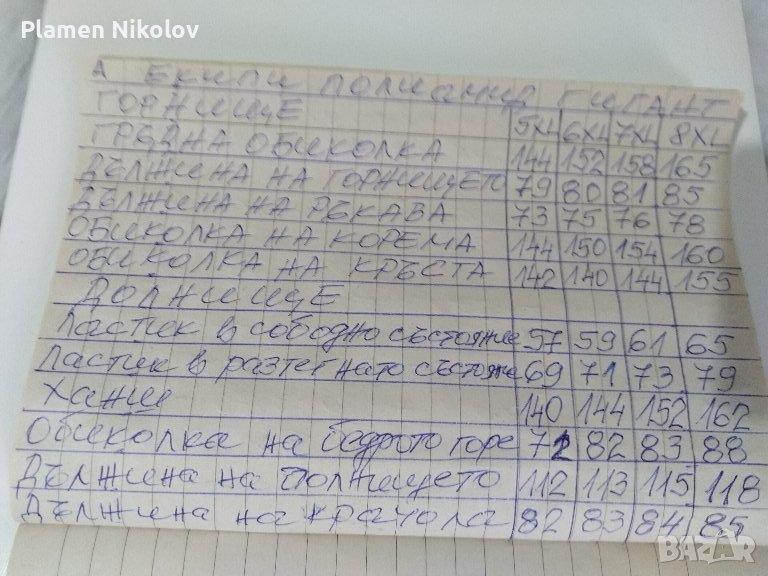 Plamen Nikolov
А ЕКИПИ ПОЛИАМИД ГИГАНТ
ГОРНИЩЕ 5XL 6XL 7XL 8XL
ГРЪДНА ОБИКОЛКА 144 152 158 165
ДЪЛЖИНА НА ГОРНИЩЕТО 79 80 81 85
ДЪЛЖИНА НА РЪКАВА 73 75 76 78
ОБИКОЛКА НА КОРЕМА 144 150 154 160
ОБИКОЛКА НА КРЪСТА 142 140 144 155
ДОЛНИЩЕ
Ластик в свободно състояние 57 59 61 65
Ластик в разтегнато състояние 69 71 73 79
Ханш 140 144 152 162
Обиколка на бедрото горе 72 82 83 88
Дължина на долнището 112 113 115 118
Дължина на крачола 82 83 84 85
BAZAR